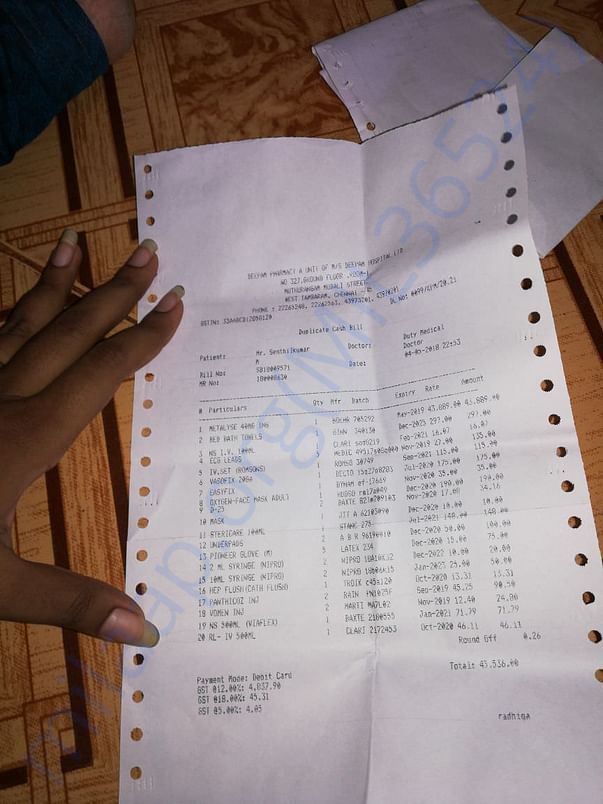 DEEPAM PHARMACY A UNIT OF M/S DEEPAM HOSPITAL LTD
NO 327,GROUND FLOOR ,ROOM-1
MUTHURANGAM MUDALI STREET,
WEST TAMBARAM, CHENNAI - 45
PHONE : 22265248, 22262563, 43973201, 43970201
GSTIN: 33AABCD1205D1Z0 DL No: 0099/KPM/20.21
Duplicate Cash Bill
Patient: Mr. Senthilkumar M Doctor: Duty Medical Doctor
Bill No: SB18009571 Date: 04-05-2018 22:53
MR No: 180008630
# Particulars Qty Mfr Batch Expiry Rate Amount
1 METALYSE 40MG INJ 1 705292 May-2019 43,889.00 43,889.00
2 BED BATH TOWELS 1 340130 Dec-2025 297.00 297.00
3 NS I.V. 100ML 1 CLARI Feb-2021 16.07 16.07
4 ECG LEADS 5 MEDIC Nov-2019 27.00 135.00
5 IV.SET (ROMSONS) 1 ROMSO 30749 Sep-2021 115.00 115.00
6 VASOFIX 20GA 1 Jul-2020 175.00 175.00
7 EASYFIX 1 Nov-2020 35.00 35.00
8 OXYGEN-FACE MASK ADULT 1 HUDSO Dec-2020 190.00 190.00
9 D-25 2 BAXTE Nov-2020 17.08 34.16
10 MASK 1 JIT A 62103090 Dec-2020 10.00 10.00
11 STERICARE 100ML 1 Jul-2021 148.00 148.00
12 UNDERPADS 2 A B R 96190010 Dec-2020 50.00 100.00
13 PIONEER GLOVE (M) 5 LATEX 234 Dec-2020 15.00 75.00
14 2 ML SYRINGE (NIPRO) 2 Dec-2022 10.00 20.00
15 10ML SYRINGE (NIPRO) 2 Jan-2023 25.00 50.00
16 HEP FLUSH(CATH FLUSH) 1 TROIK Oct-2020 13.31 13.31
17 PANTHICOZ INJ 2 Sep-2019 45.25 90.50
18 VOMEN INJ 2 Nov-2019 12.40 24.80
19 NS 500ML (VIAFLEX) 1 BAXTE Jan-2021 71.79 71.79
20 RL- IV 500ML 1 CLARI 2172453 Oct-2020 46.11 46.11
Round Off 0.26
Total: 43,536.00
Payment Mode: Debit Card
GST @12.00%: 4,837.90
GST @18.00%: 45.31
GST @5.00%: 4.05
radhiga